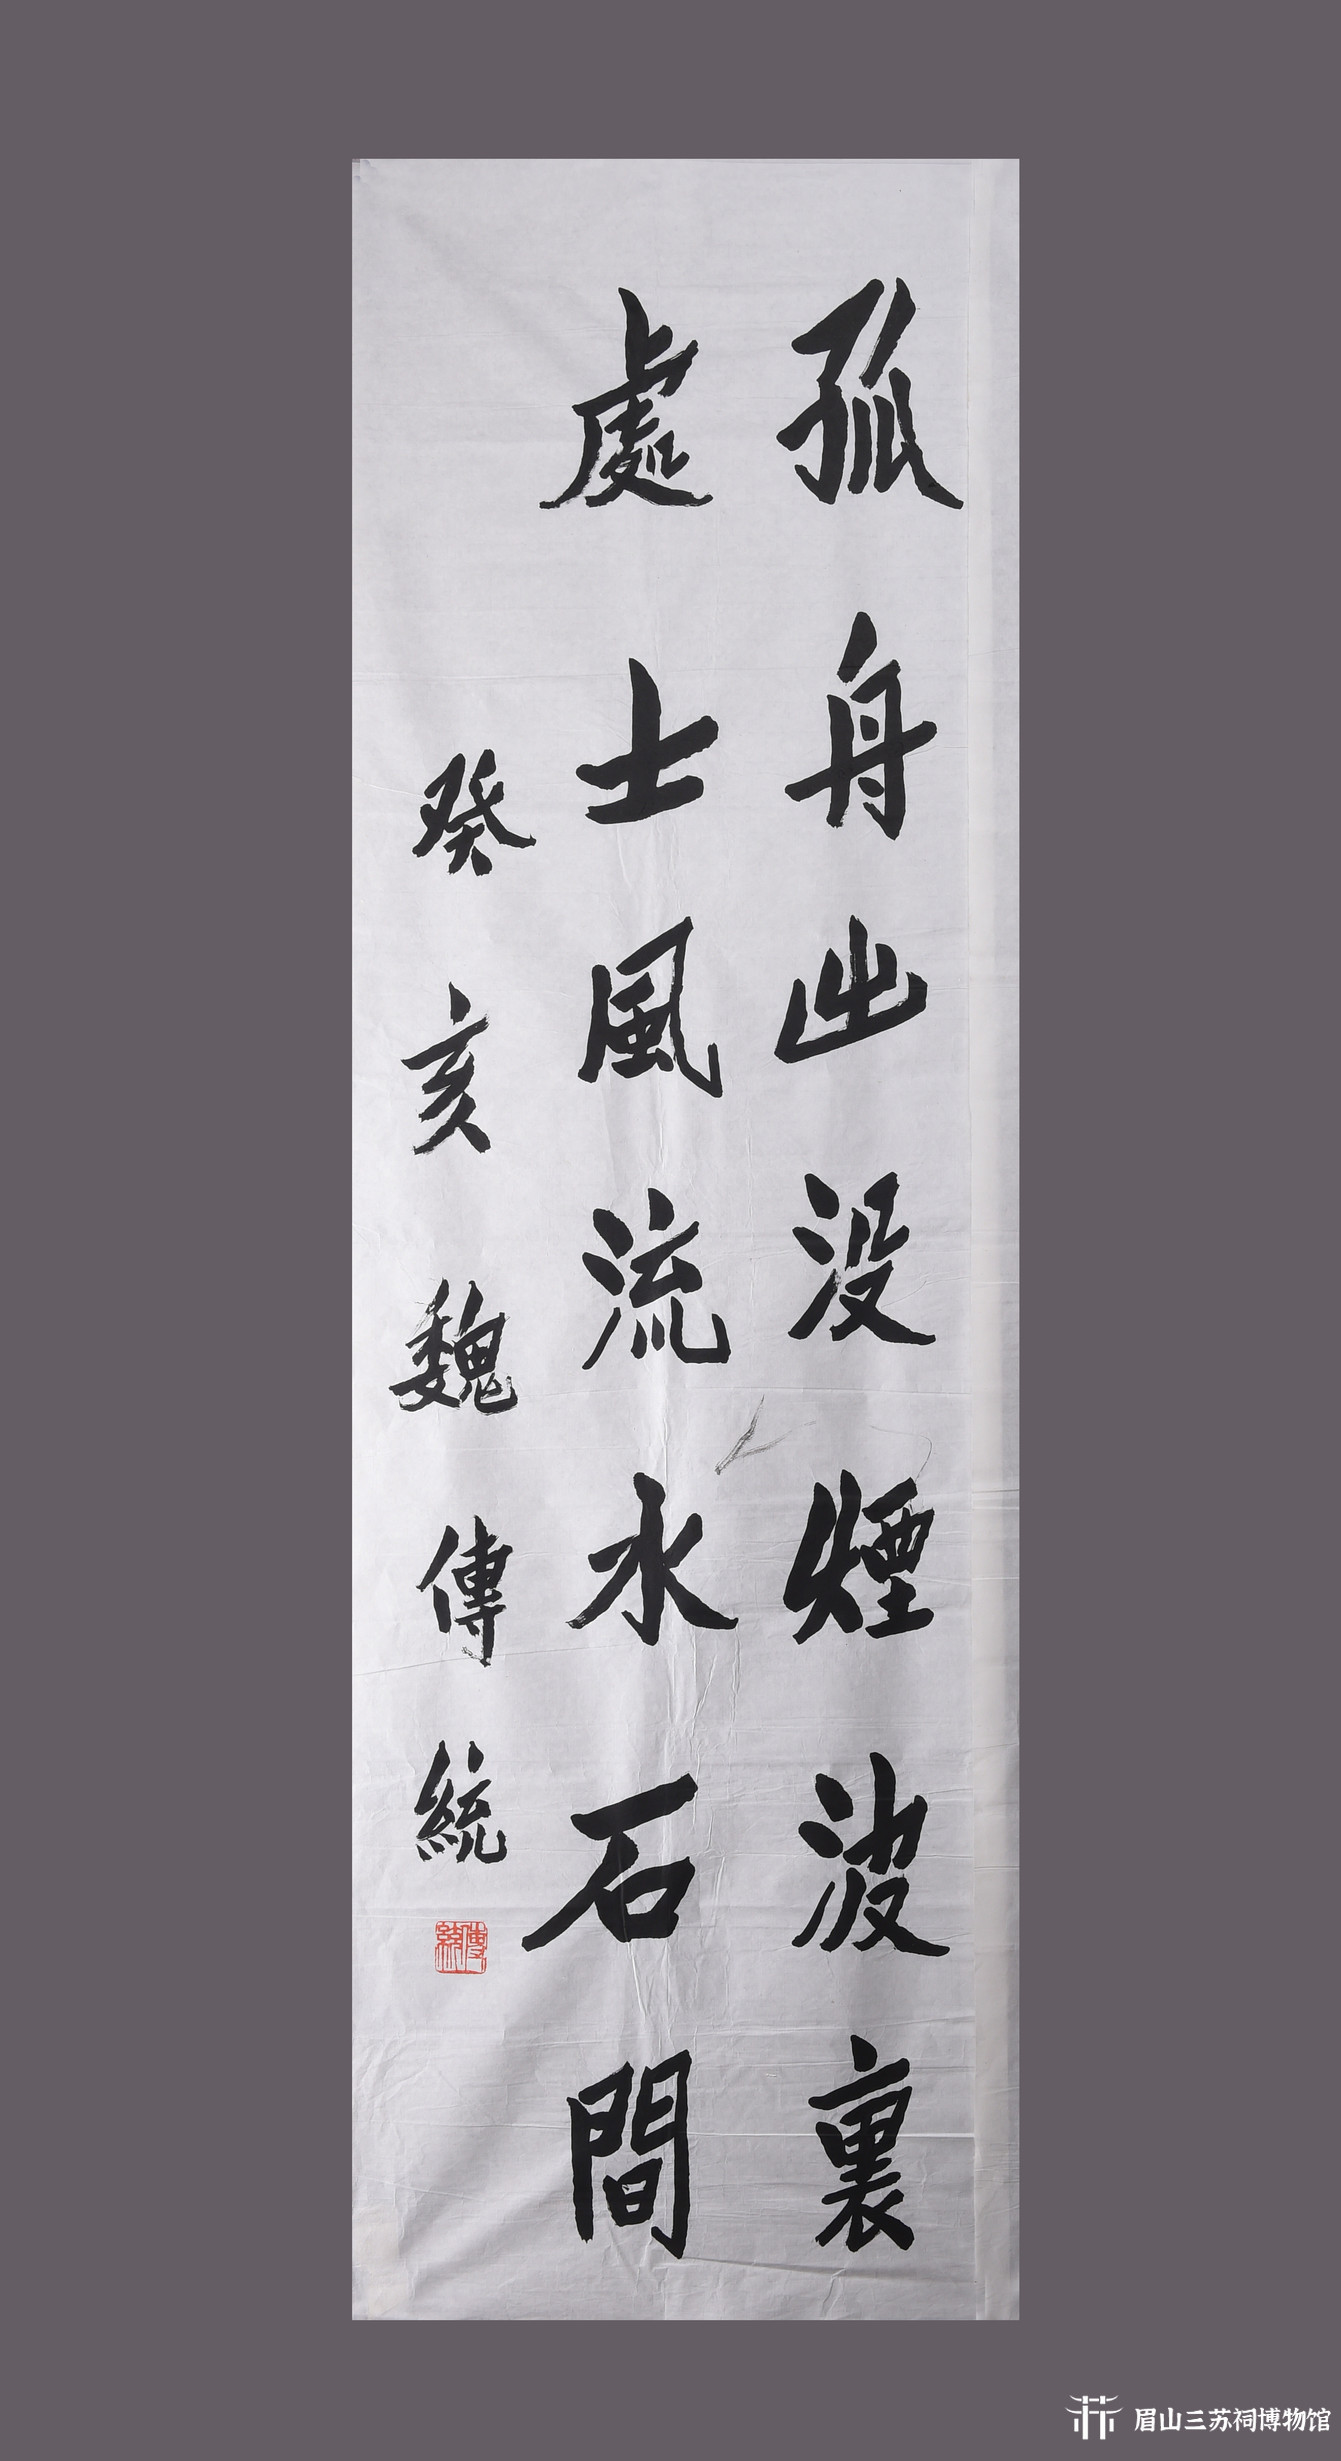 孤舟出没煙波裏
處士風流水石間
癸亥魏傳統
傳統
眉山三苏祠博物馆